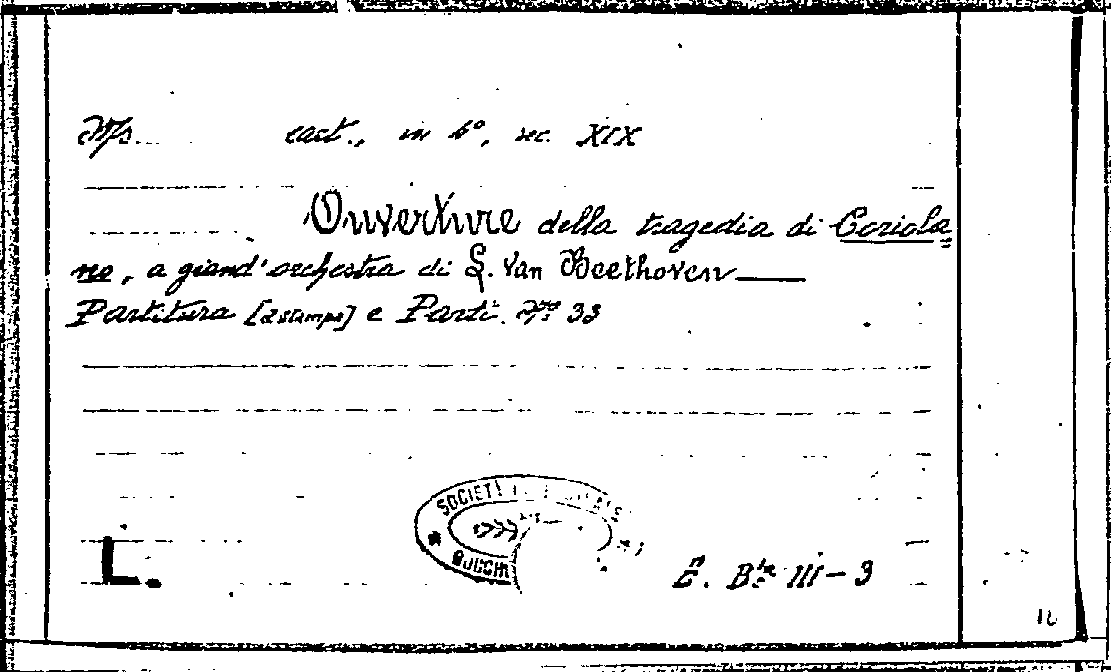 Ms. cart., in 4°, sec. XIX
Ouverture della tragedia di Coriola=
no, a grand'orchestra di L. Van Beethoven
Partitura [a stampa] e Parti. N° 33
SOCIETÀ
L.
E. B III-9
12